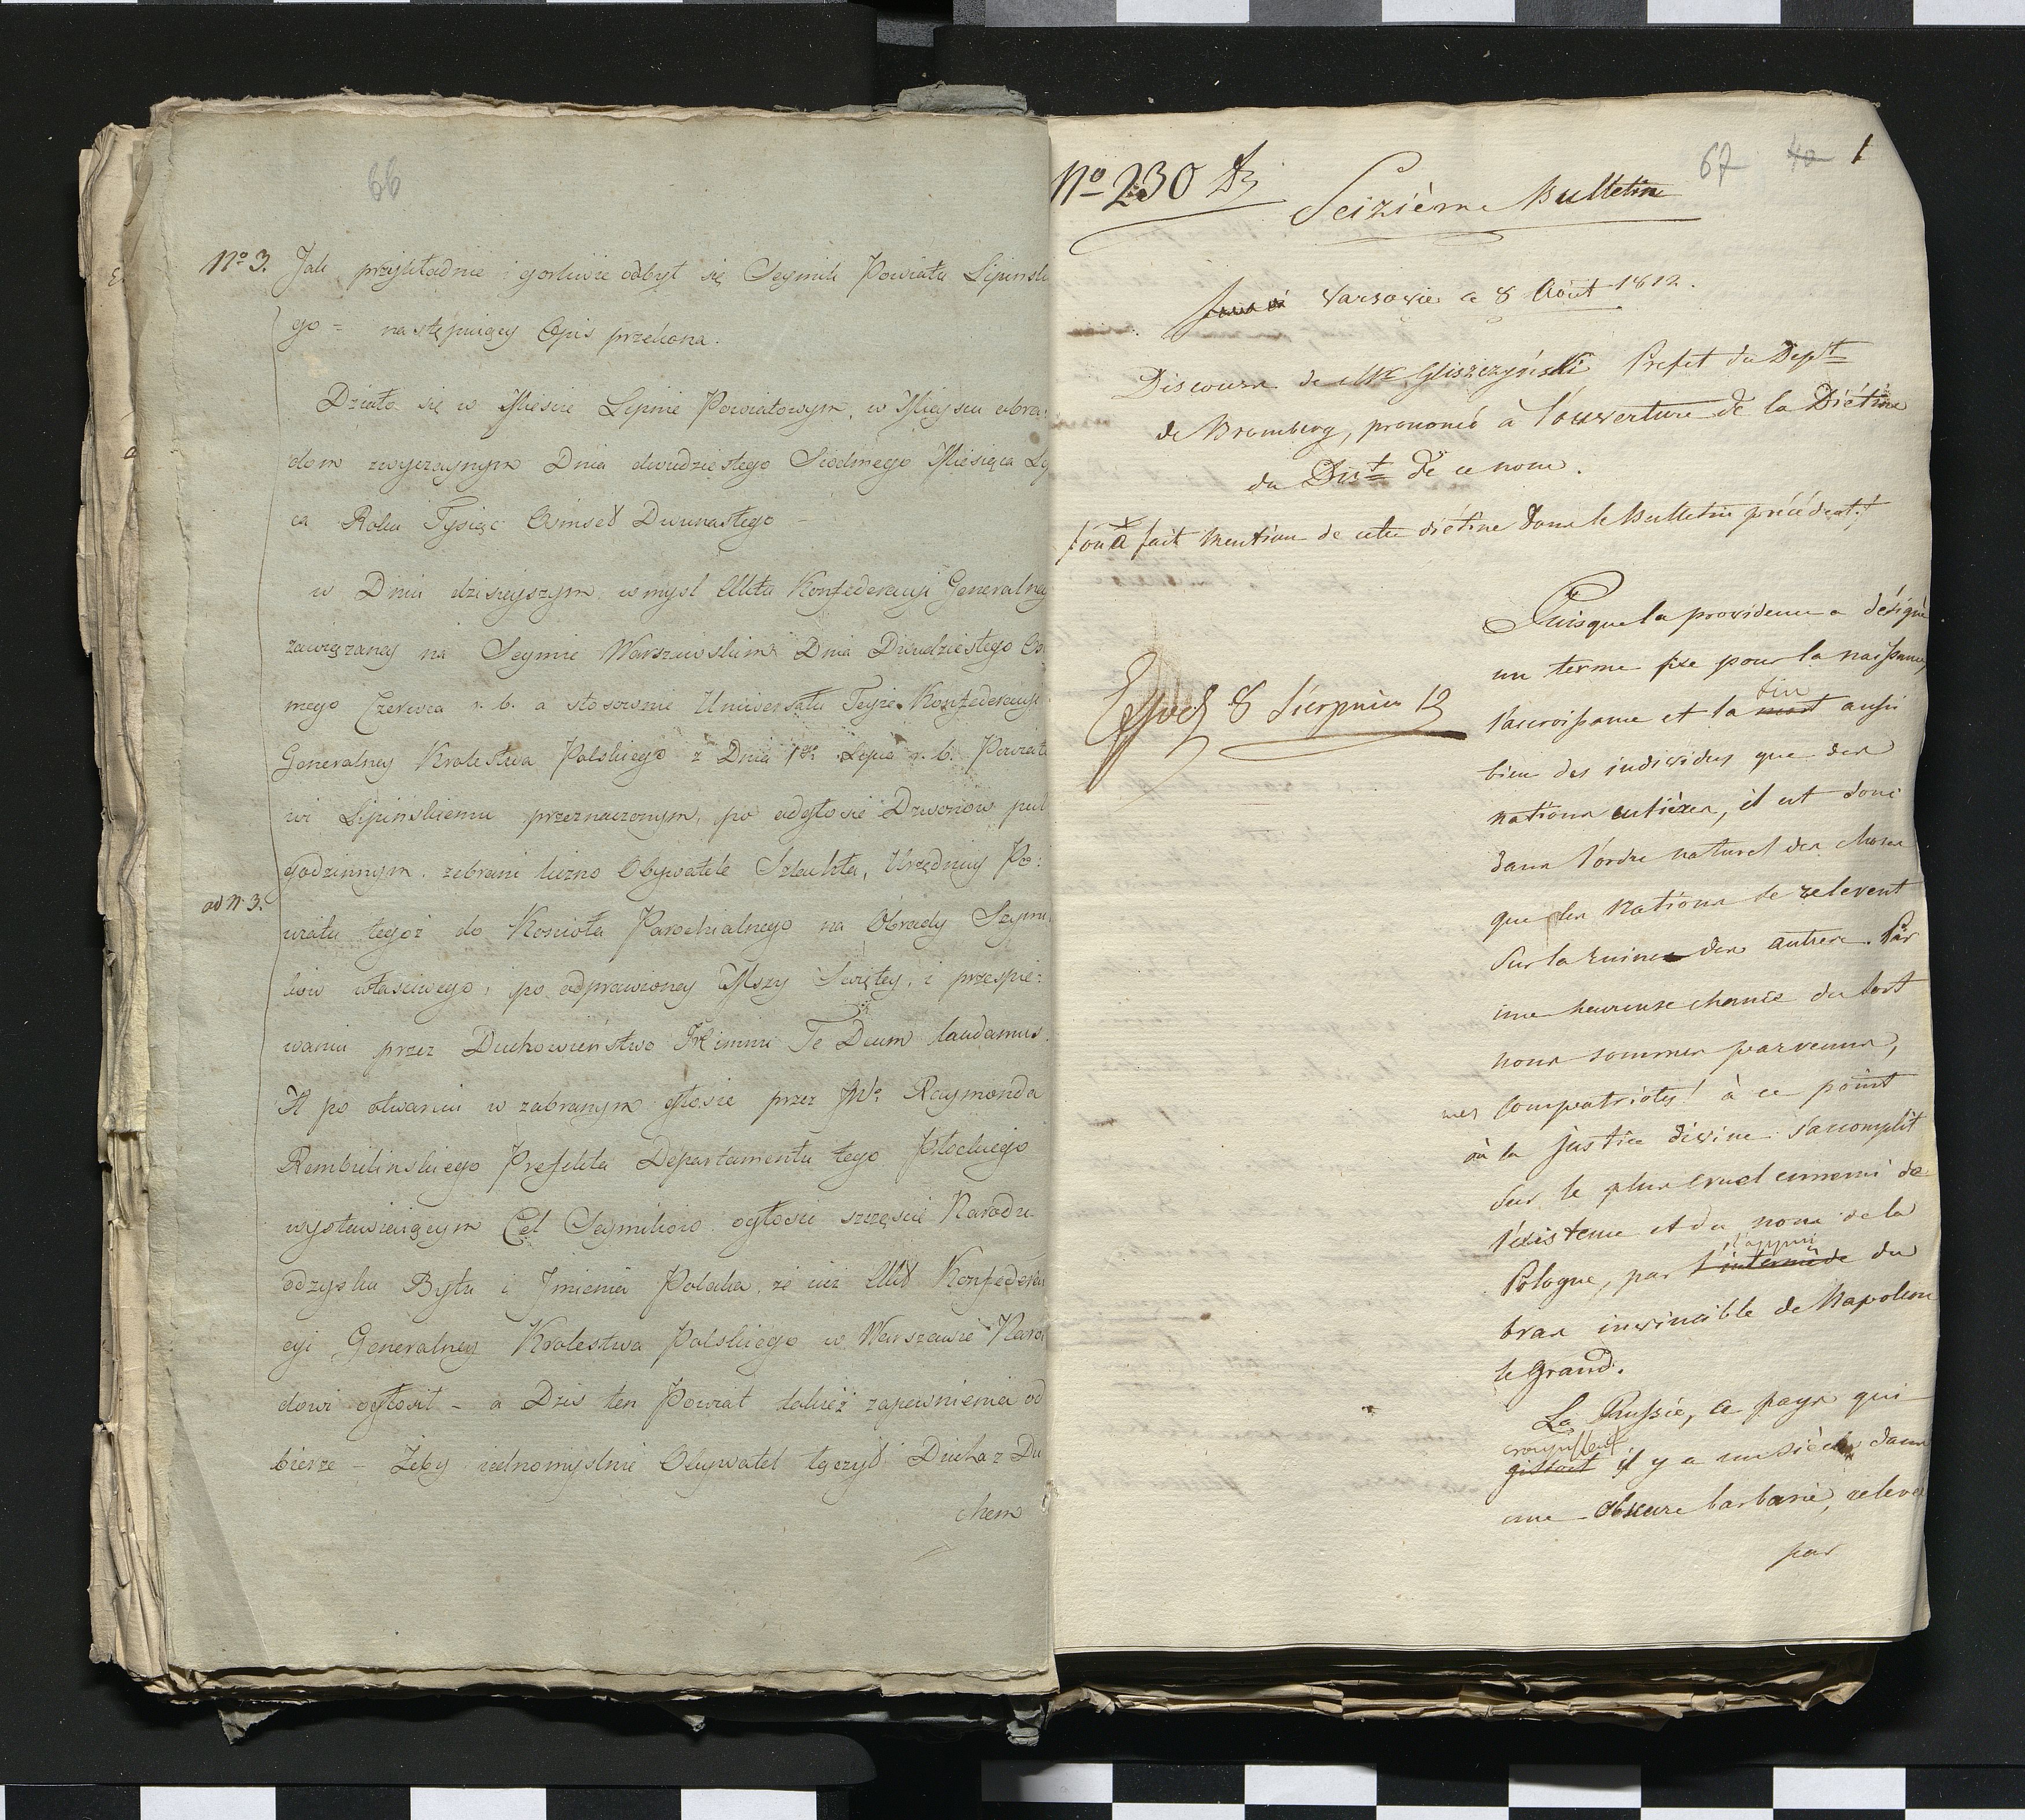 66
No 3. Jak przykładnie i gorliwie odbył się Seymik Powiatu Lipinskie
go = następuiący Opis przekona.
Działo się w Mieście Lipnie Powiatowym, w Mieyscu obra:
dom zwyczaynym Dnia dwudziestego Siodmego Miesiąca Lip
ca Roku Tysiąc Osmset Dwunastego -
w Dniu dzisieyszym w mysl Aktu Konfederacyi Generalney
zawiązaney na Seymie Warszawskim Dnia Dwudziestego Os
mego Czerwca r. b. a stosownie Uniwersału Teyże Konfederacyi
Generalney Krolestwa Polskiego z Dnia 1go Lipca r. b. Powiato
wi Lipinskiemu przeznaczonym, po odgłosie Dzwonow puł
godzinnym, zebrani liczno Obywatele Szlachta, Urzędnicy Po:
ad N. 3.
wiatu tegoż do Kościoła Parochialnego na Obrady Seymi
kow właściwego, po odprawioney Mszy Swiętey, i przespie:
waniu przez Duchowieństwo Himnu Te Deum laudamus.
A po otwarciu w zabranym głosie przez JWo Raymonda
Rembielinskiego Prefekta Departamentu tego Płockiego
wystawiaiącym Cel Seymikow ogłosić szczęście Narodu
odzysku Bytu i Jmienia Polaka, że iuż Akt Konfedera
cyi Generalney Krolestwa Polskiego w Warszawie Naro
dowi ogłosił - a Dzis ten Powiat takież zapewnienia od
bierze - Żeby iednomyslnie Obywatel łączył Ducha z Du
chem
No 230
67 40 1
Seizième Bulletin
Varsovie ce 8 Août 1812.
Discours de Mr. Gliszczyński Prefet du Dept
de Bromberg, prononcé à l'ouverture de la Diétine
du Dist de ce nom.
(on a fait mention de cette diétine dans le Bulletin précédent.)
Exped 8 Sierpnia 12
Puisque la providence a désigné
un terme fixe pour la naissance,
l'accroissance et la mort fin aussi
bien des individus que des
nations entières, il est donc
dans l'ordre naturel des choses
que les nations se relevent
sur la ruine des autres. Par
une heureuse chance du sort
nous sommes parvenus,
mes compatriotes! à ce point
où la justice divine s'accomplit
sur le plus cruel ennemi de
l'existence et du nom de la
Pologne, par l'intermède l'appui du
bras invincible de Napoleon
le Grand.
La Russie, ce pays qui
gissait croupissait il y a un siècle dans
une obscure barbarie, relevé
par